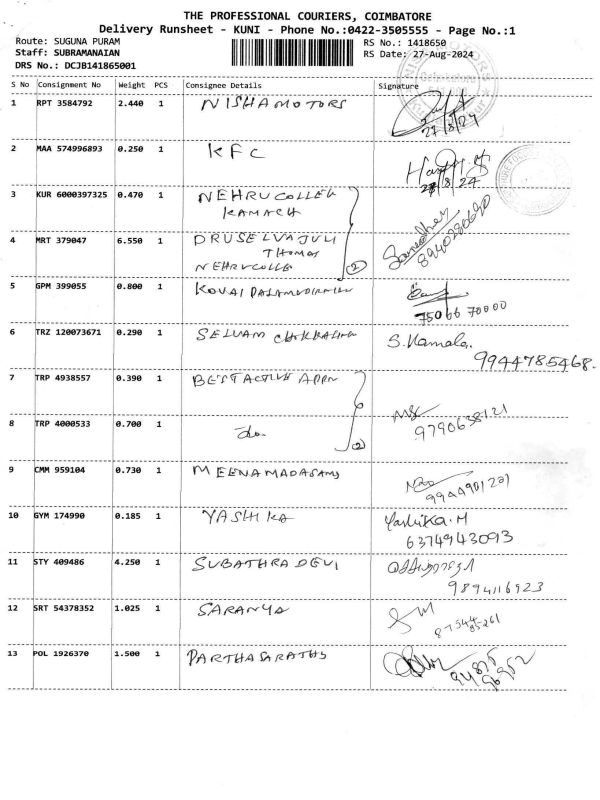 THE PROFESSIONAL COURIERS, COIMBATORE
Delivery Runsheet - KUNI - Phone No.:0422-3505555 - Page No.:1
Route: SUGUNA PURAM
RS No.: 1418650
Staff: SUBRAMANAIAN
RS Date: 27-Aug-2024
DRS No.: DCJB141865001
S No Consignment No Weight PCS Consignee Details Signature
1 RPT 3584792 2.440 1 NISHA MOTORS
27/8/24
2 MAA 574996893 0.250 1 KFC
3 KUR 6000397325 0.470 1 NEHRU COLLEG
KAMACH
4 MRT 379047 6.550 1 DRUSELVAJULI
THOMAS
NEHRUCOLLE (2)
8940280690
5 GPM 399055 0.800 1 KOVAI
75066 70000
6 TRZ 120073671 0.290 1 SELVAM S. Kamala.
9944785468.
7 TRP 4938557 0.390 1 BEST ACTIVE APPN
8 TRP 4000533 0.700 1 do. (2)
9790638121
9 CMM 959104 0.730 1 MEENAMADASAMY
9944901201
10 GYM 174990 0.185 1 YASHIKA Yashika.M
6374943093
11 STY 409486 4.250 1 SUBATHRA DEVI
9894116923
12 SRT 54378352 1.025 1 SARANYA
87544
85261
13 POL 1926370 1.500 1 PARTHASARATHY
94875
96952